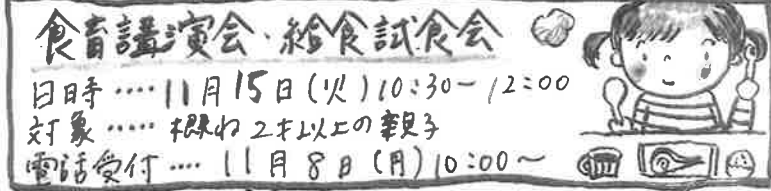 食育講演会・給食試食会
日時‥‥11月15日(火)10:30〜12:00
対象‥‥・概ね2才以上の親子
電話受付‥‥11月8日(月)10:00〜